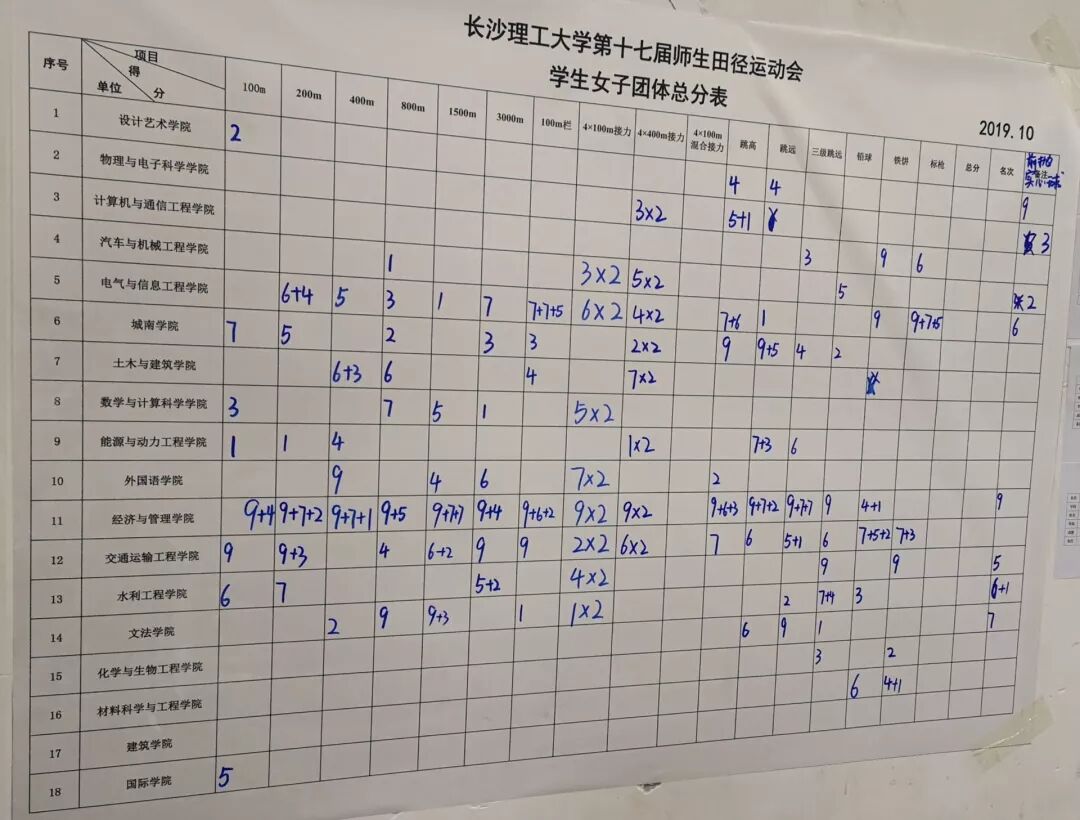 长沙理工大学第十七届师生田径运动会
学生女子团体总分表
2019.10
序号 项目 得分 单位 100m 200m 400m 800m 1500m 3000m 100m栏 4×100m接力 4×400m接力 4×100m混合接力 跳高 跳远 三级跳远 铅球 铁饼 标枪 总分 名次 备注
1 设计艺术学院 2 4 4 9
2 物理与电子科学学院 3×2 5+1 3
3 计算机与通信工程学院 3 9 6
4 汽车与机械工程学院 1 3×2 5×2 5 2
5 电气与信息工程学院 6+4 5 3 1 7 7+7+5 6×2 4×2 7+6 1 9 9+7+5 6
6 城南学院 7 5 2 3 3 2×2 9 9+5 4 2
7 土木与建筑学院 6+3 6 4 7×2
8 数学与计算科学学院 3 7 5 1 5×2
9 能源与动力工程学院 1 1 4 1×2 7+3 6
10 外国语学院 9 4 6 7×2 2
11 经济与管理学院 9+4 9+7+2 9+7+1 9+5 9+7+7 9+4 9+6+2 9×2 9×2 9+6+3 9+7+2 9+7+7 9 4+1 9
12 交通运输工程学院 9 9+3 4 6+2 9 9 2×2 6×2 7 6 5+1 6 7+5+2 7+3
13 水利工程学院 6 7 5+2 4×2 9 9 5
14 文法学院 2 9 9+3 1 1×2 2 7+4 3 6+1
15 化学与生物工程学院 6 9 1 7
16 材料科学与工程学院 3 2
17 建筑学院 6 4+1
18 国际学院 5